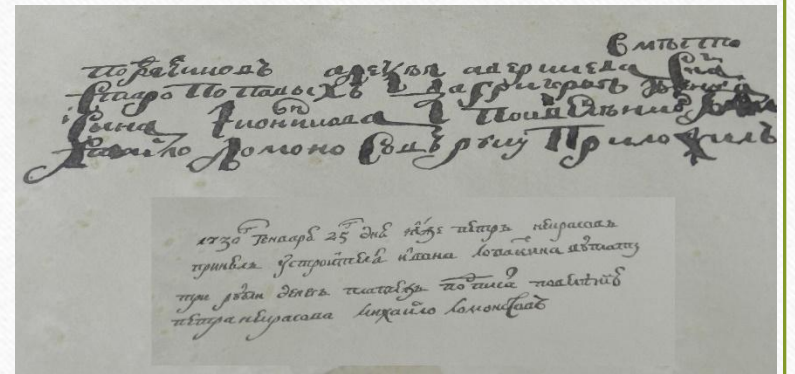 Вмѣсто
подрѧчиковъ алекъѣѧ аверкиева сна
Старопоповыхъ да григорьѧ
сына иконникова по ихъ велѣнию
Михайло Ломоносовъ руку приложилъ
1730 генварѧ 25 днѧ петръ некрасовъ
принѧлъ у строителѧ ивана лопаткина
три рубли денегъ подписалъ по велѣнию
петра некрасова михайло ломоносовъ